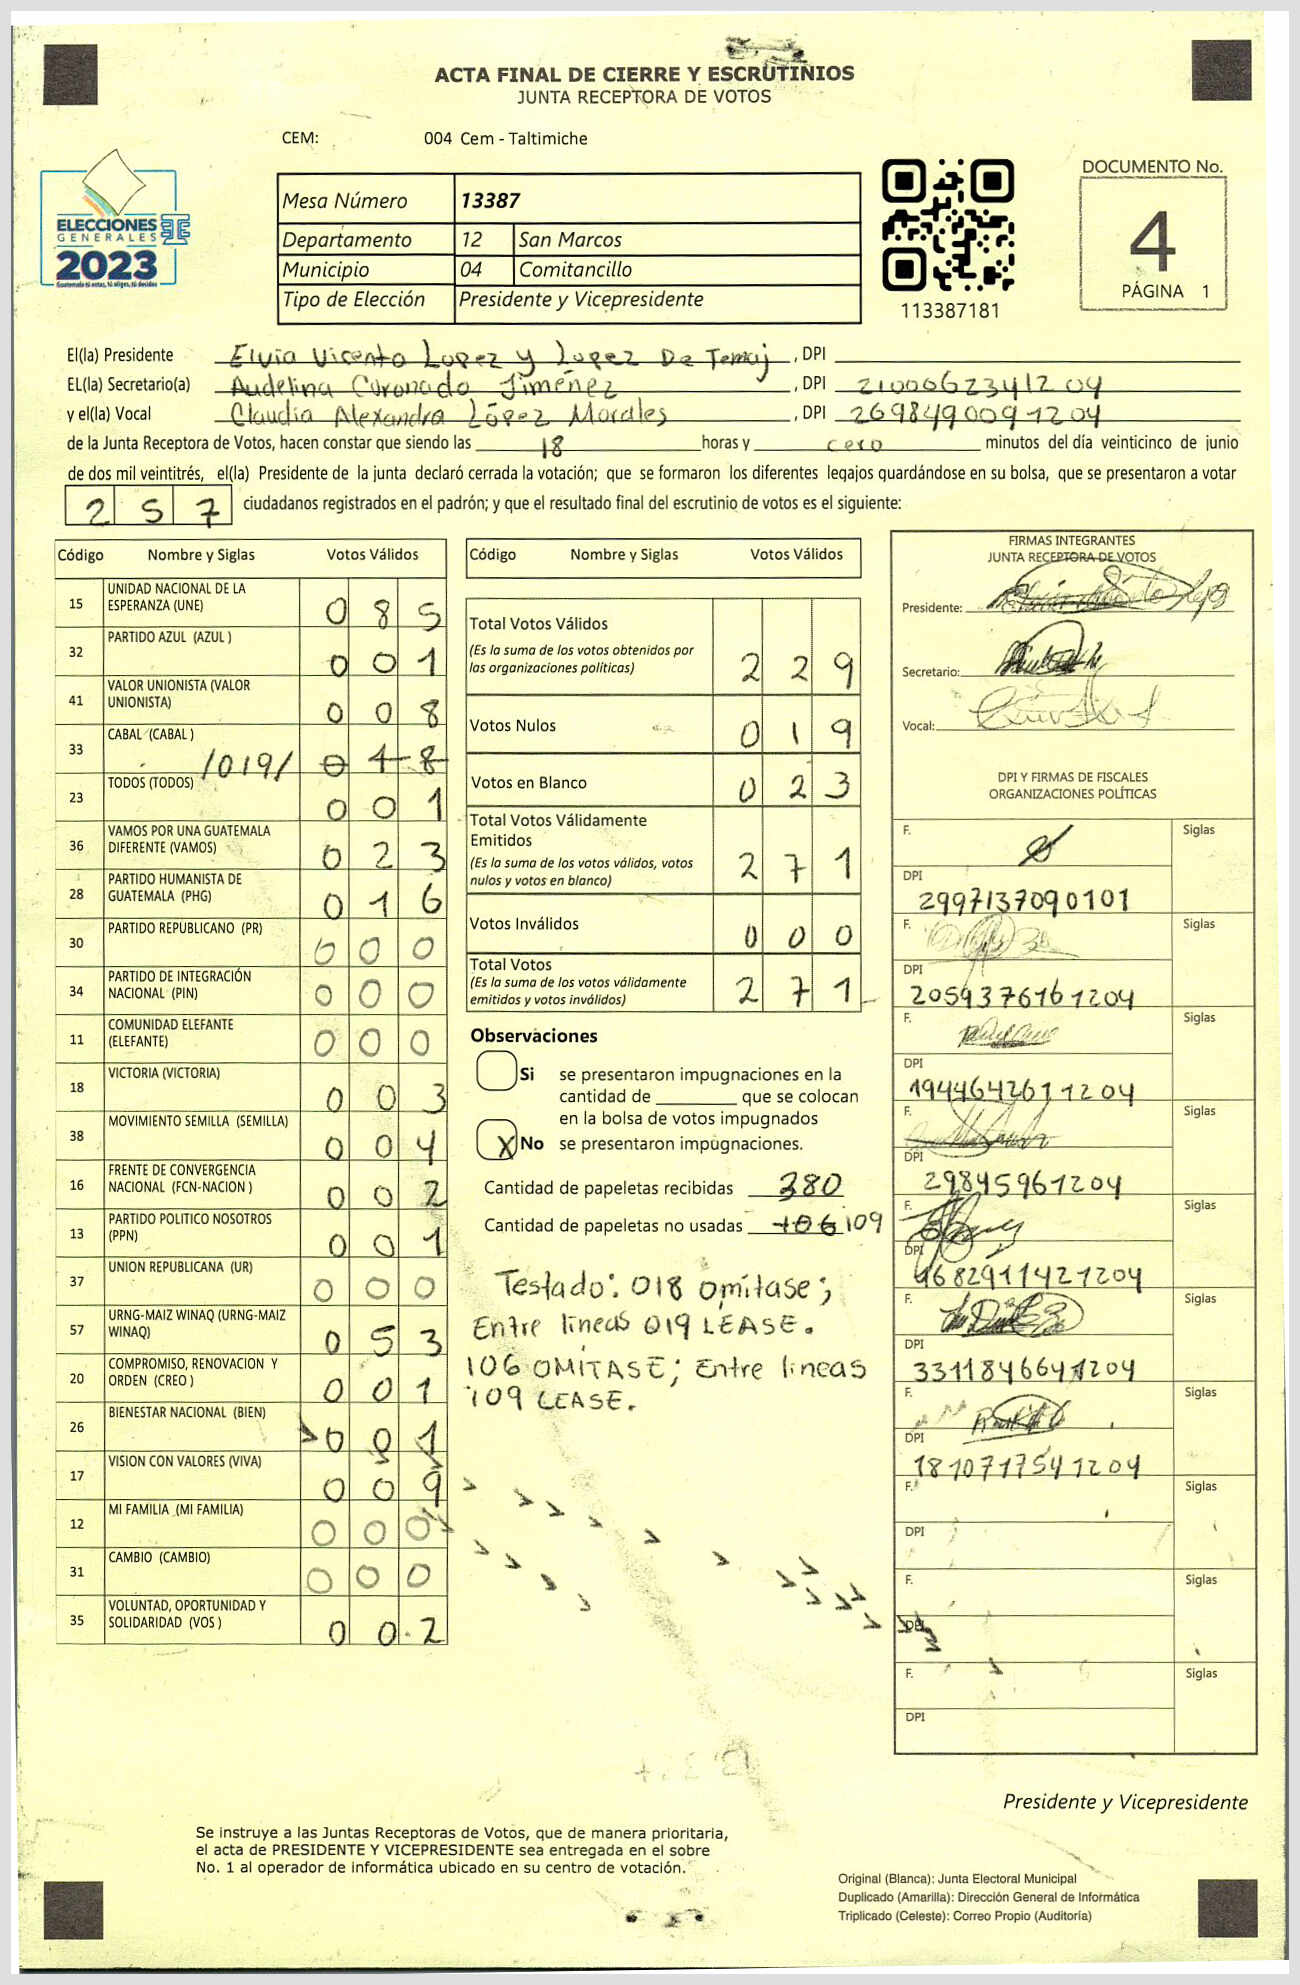 ACTA FINAL DE CIERRE Y ESCRUTINIOS
JUNTA RECEPTORA DE VOTOS
CEM: 004 Cem - Taltimiche
ELECCIONES
GENERALES
2023
Guatemala tú votas, tú eliges, tú decides
Mesa Número 13387
Departamento 12 San Marcos
Municipio 04 Comitancillo
Tipo de Elección Presidente y Vicepresidente
113387181
DOCUMENTO No.
4
PÁGINA 1
El(la) Presidente Elvia Vicenta Lopez y Lopez De Temaj, DPI
EL(la) Secretario(a) Audelina Coronado Jiménez, DPI 2100062341204
y el(la) Vocal Claudia Alexandra López Morales, DPI 2698490091204
de la Junta Receptora de Votos, hacen constar que siendo las 18 horas y cero minutos del día veinticinco de junio
de dos mil veintitrés, el(la) Presidente de la junta declaró cerrada la votación; que se formaron los diferentes legajos quardándose en su bolsa, que se presentaron a votar
257 ciudadanos registrados en el padrón; y que el resultado final del escrutinio de votos es el siguiente:
Código Nombre y Siglas Votos Válidos
15 UNIDAD NACIONAL DE LA ESPERANZA (UNE) 085
32 PARTIDO AZUL (AZUL ) 001
41 VALOR UNIONISTA (VALOR UNIONISTA) 008
33 CABAL (CABAL ) /019/ 018
23 TODOS (TODOS) 001
36 VAMOS POR UNA GUATEMALA DIFERENTE (VAMOS) 023
28 PARTIDO HUMANISTA DE GUATEMALA (PHG) 016
30 PARTIDO REPUBLICANO (PR) 000
34 PARTIDO DE INTEGRACIÓN NACIONAL (PIN) 000
11 COMUNIDAD ELEFANTE (ELEFANTE) 000
18 VICTORIA (VICTORIA) 003
38 MOVIMIENTO SEMILLA (SEMILLA) 004
16 FRENTE DE CONVERGENCIA NACIONAL (FCN-NACION ) 002
13 PARTIDO POLITICO NOSOTROS (PPN) 001
37 UNION REPUBLICANA (UR) 000
57 URNG-MAIZ WINAQ (URNG-MAIZ WINAQ) 053
20 COMPROMISO, RENOVACION Y ORDEN (CREO ) 001
26 BIENESTAR NACIONAL (BIEN) 001
17 VISION CON VALORES (VIVA) 009
12 MI FAMILIA (MI FAMILIA) 000
31 CAMBIO (CAMBIO) 000
35 VOLUNTAD, OPORTUNIDAD Y SOLIDARIDAD (VOS ) 002
Código Nombre y Siglas Votos Válidos
Total Votos Válidos
(Es la suma de los votos obtenidos por
las organizaciones políticas) 229
Votos Nulos 019
Votos en Blanco 023
Total Votos Válidamente
Emitidos
(Es la suma de los votos válidos, votos
nulos y votos en blanco) 271
Votos Inválidos 000
Total Votos
(Es la suma de los votos válidamente
emitidos y votos inválidos) 271
Observaciones
Si se presentaron impugnaciones en la
cantidad de ________ que se colocan
en la bolsa de votos impugnados
X No se presentaron impugnaciones.
Cantidad de papeletas recibidas 380
Cantidad de papeletas no usadas 106 109
Testado: 018 omítase;
Entre líneas 019 LEASE.
106 OMÍTASE; Entre lineas
109 LEASE.
FIRMAS INTEGRANTES
JUNTA RECEPTORA DE VOTOS
Presidente:
Secretario:
Vocal:
DPI Y FIRMAS DE FISCALES
ORGANIZACIONES POLÍTICAS
F. Siglas
DPI
2997137090101
F. Siglas
DPI
2059376161204
F. Siglas
DPI
1944642611204
F. Siglas
DPI
29845961204
F. Siglas
DPI
1682911421204
F. Siglas
DPI
3311846641204
F. Siglas
DPI
1810717541204
F. Siglas
DPI
F. Siglas
DPI
F. Siglas
DPI
Presidente y Vicepresidente
Se instruye a las Juntas Receptoras de Votos, que de manera prioritaria,
el acta de PRESIDENTE Y VICEPRESIDENTE sea entregada en el sobre
No. 1 al operador de informática ubicado en su centro de votación.
Original (Blanca): Junta Electoral Municipal
Duplicado (Amarilla): Dirección General de Informática
Triplicado (Celeste): Correo Propio (Auditoría)